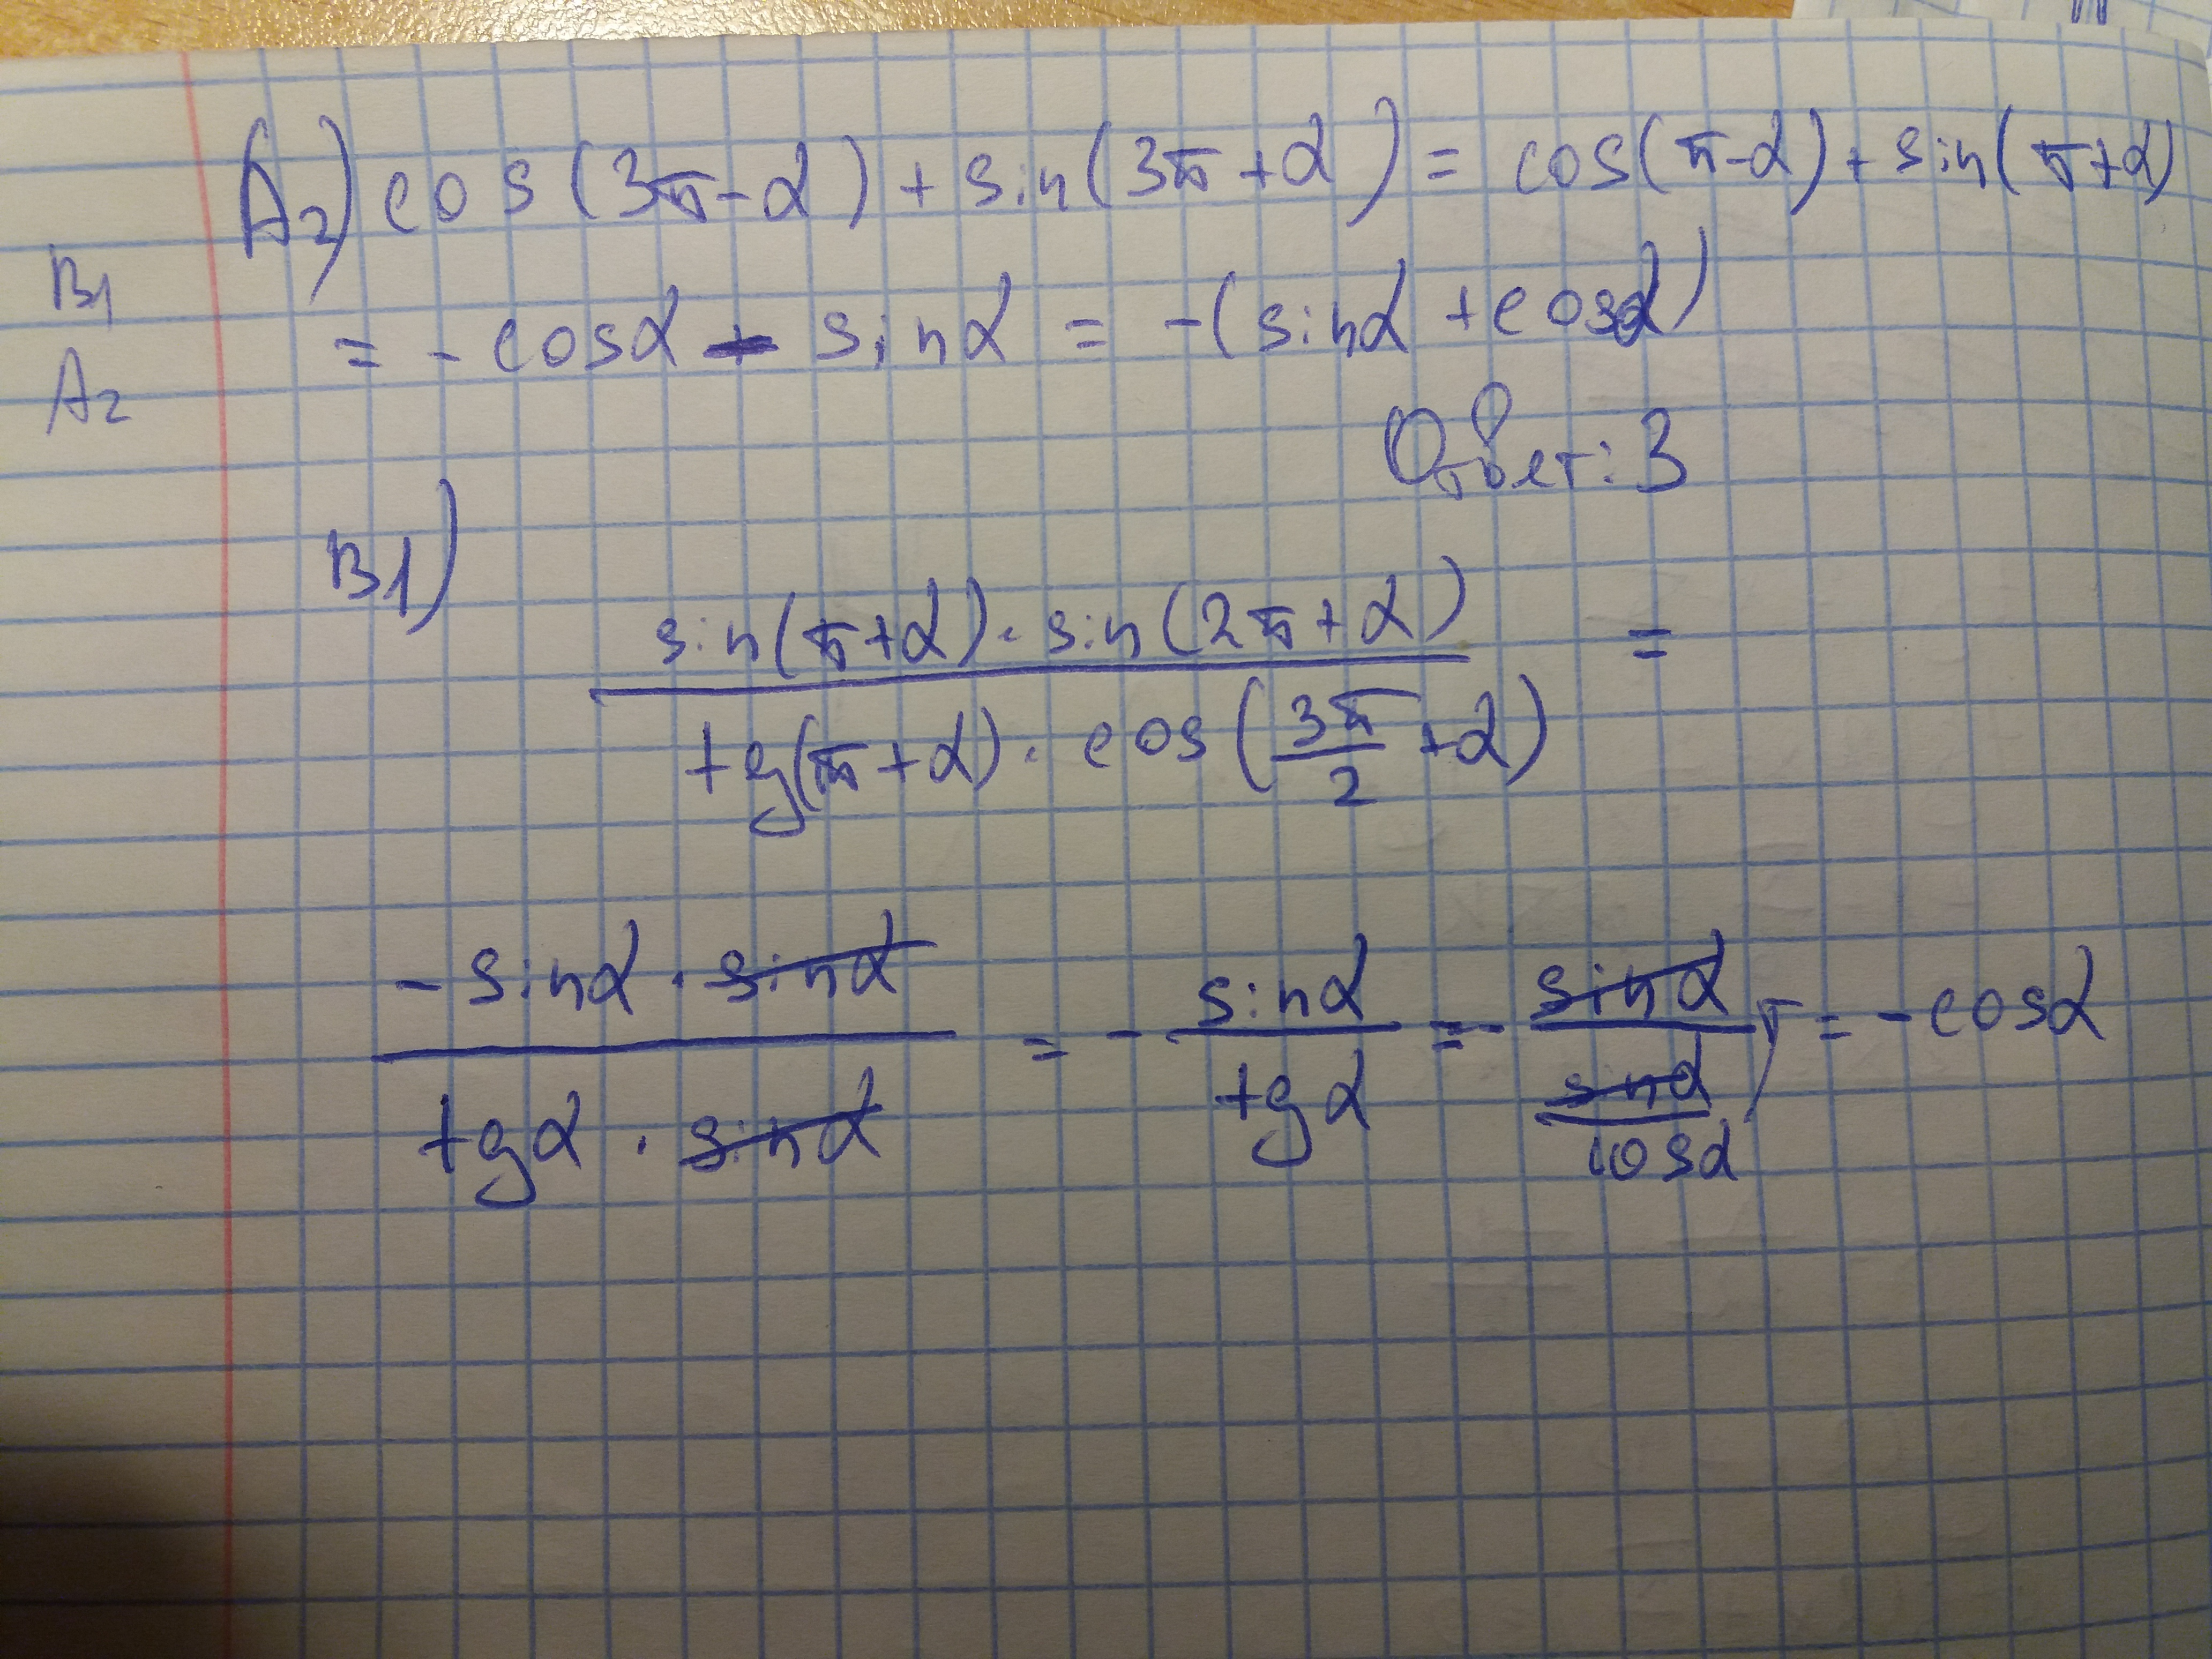 A2) cos(3π-α)+sin(3π+α)= cos(π-α)+sin(π+α)
B1
= -cosα - sinα = -(sinα +cosα)
A2
Ответ: 3
B1)
sin(π+α)·sin(2π+α)
=
tg(π+α)· cos(3π/2 +α)
-sinα · sinα / tgα · sinα = - sinα / tgα = - sinα / (sinα / cosα) = -cosα